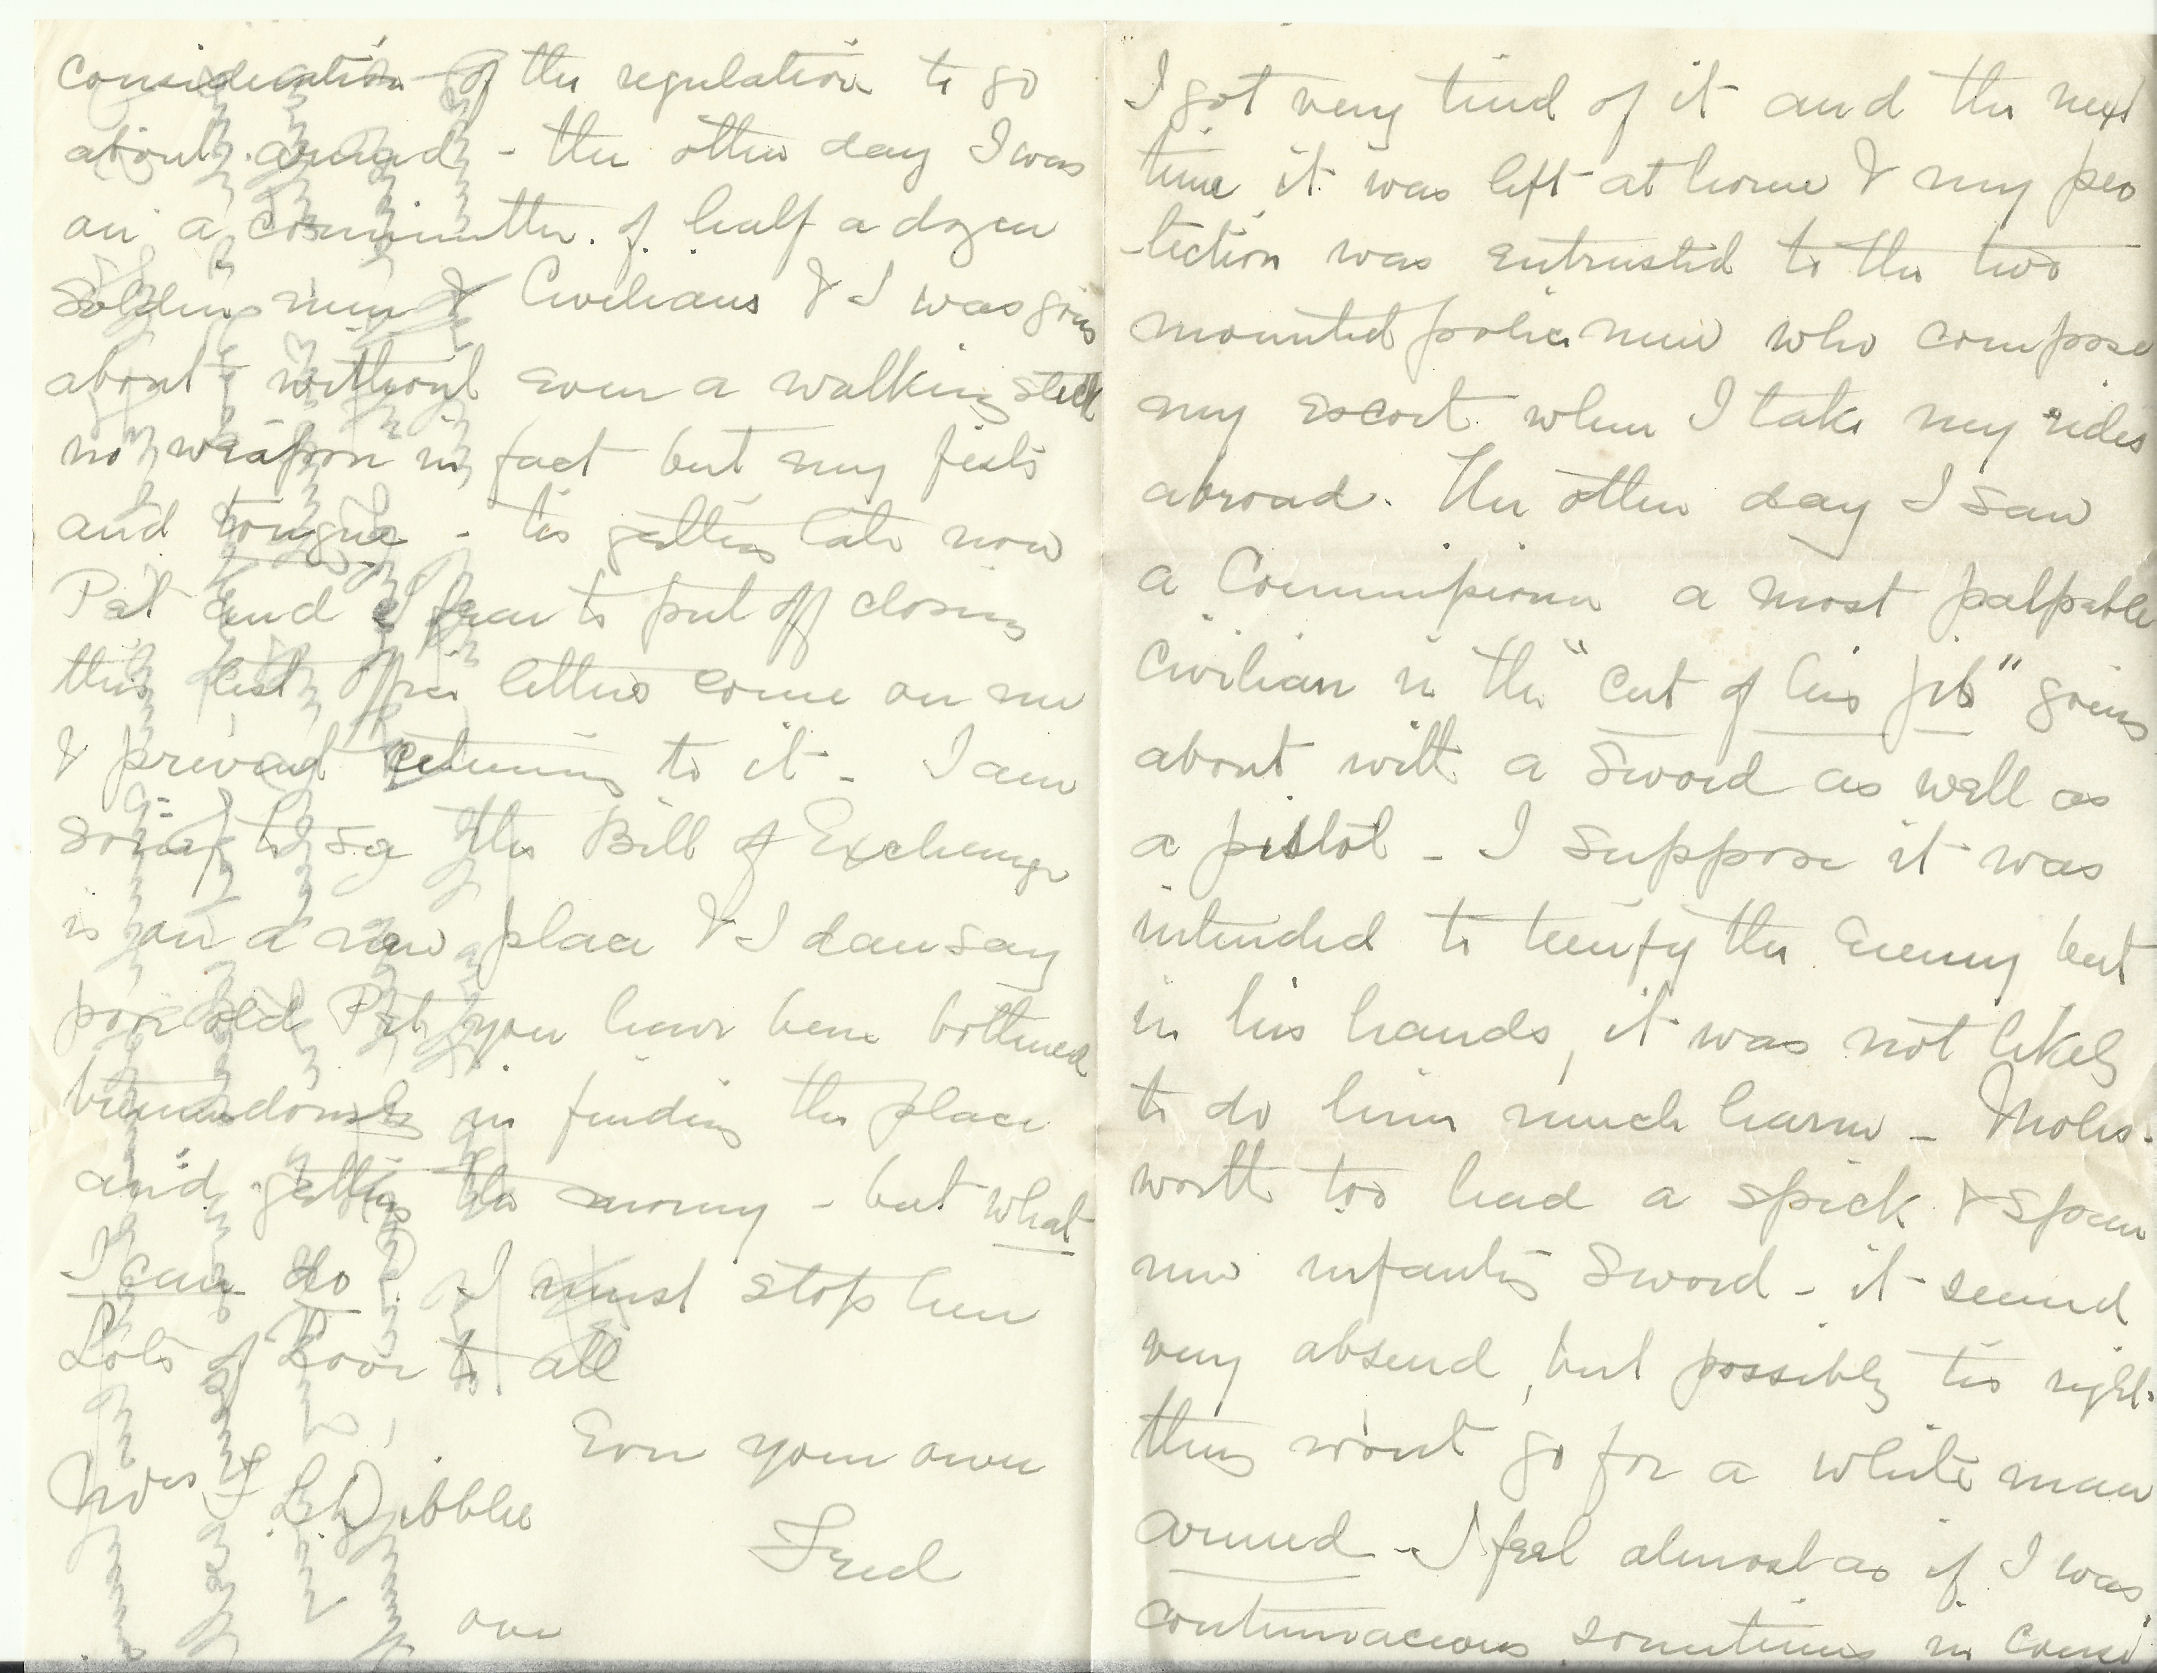 consideration of the regulation to go
about armed - the other day I was
on a committee of half a dozen
Soldiers men & Civilians & I was going
about without even a walking stick
no weapon in fact but my fists
and tongue - tis getting late now
Pat and I fear to put off closing
this lest office letters come on me
& prevent returning to it - I am
sorry to say the Bill of Exchange
is on a new place & I dare say
poor old Pat you have been bothered
tremendously in finding the place
and getting the money - but what
I can do I must stop here
Lots of Love to all
Ever your own
Fred
Mrs F. L. Dibblee
over
I got very tired of it and the next
time it was left at home & my pro
-tection was entrusted to the two
mounted police men who compose
my escort when I take my rides
abroad. The other day I saw
a Commissioner a most palpable
Civilian in the "cut of his jib" going
about with a Sword as well as
a pistol - I suppose it was
intended to terrify the Enemy but
in his hands, it was not likely
to do him much harm - Moles-
worth too had a spick & span
new infantry Sword - it seemed
very absurd, but possibly tis right -
they wont go for a white man
armed - I feel almost as if I was
contumacious sometimes in consi